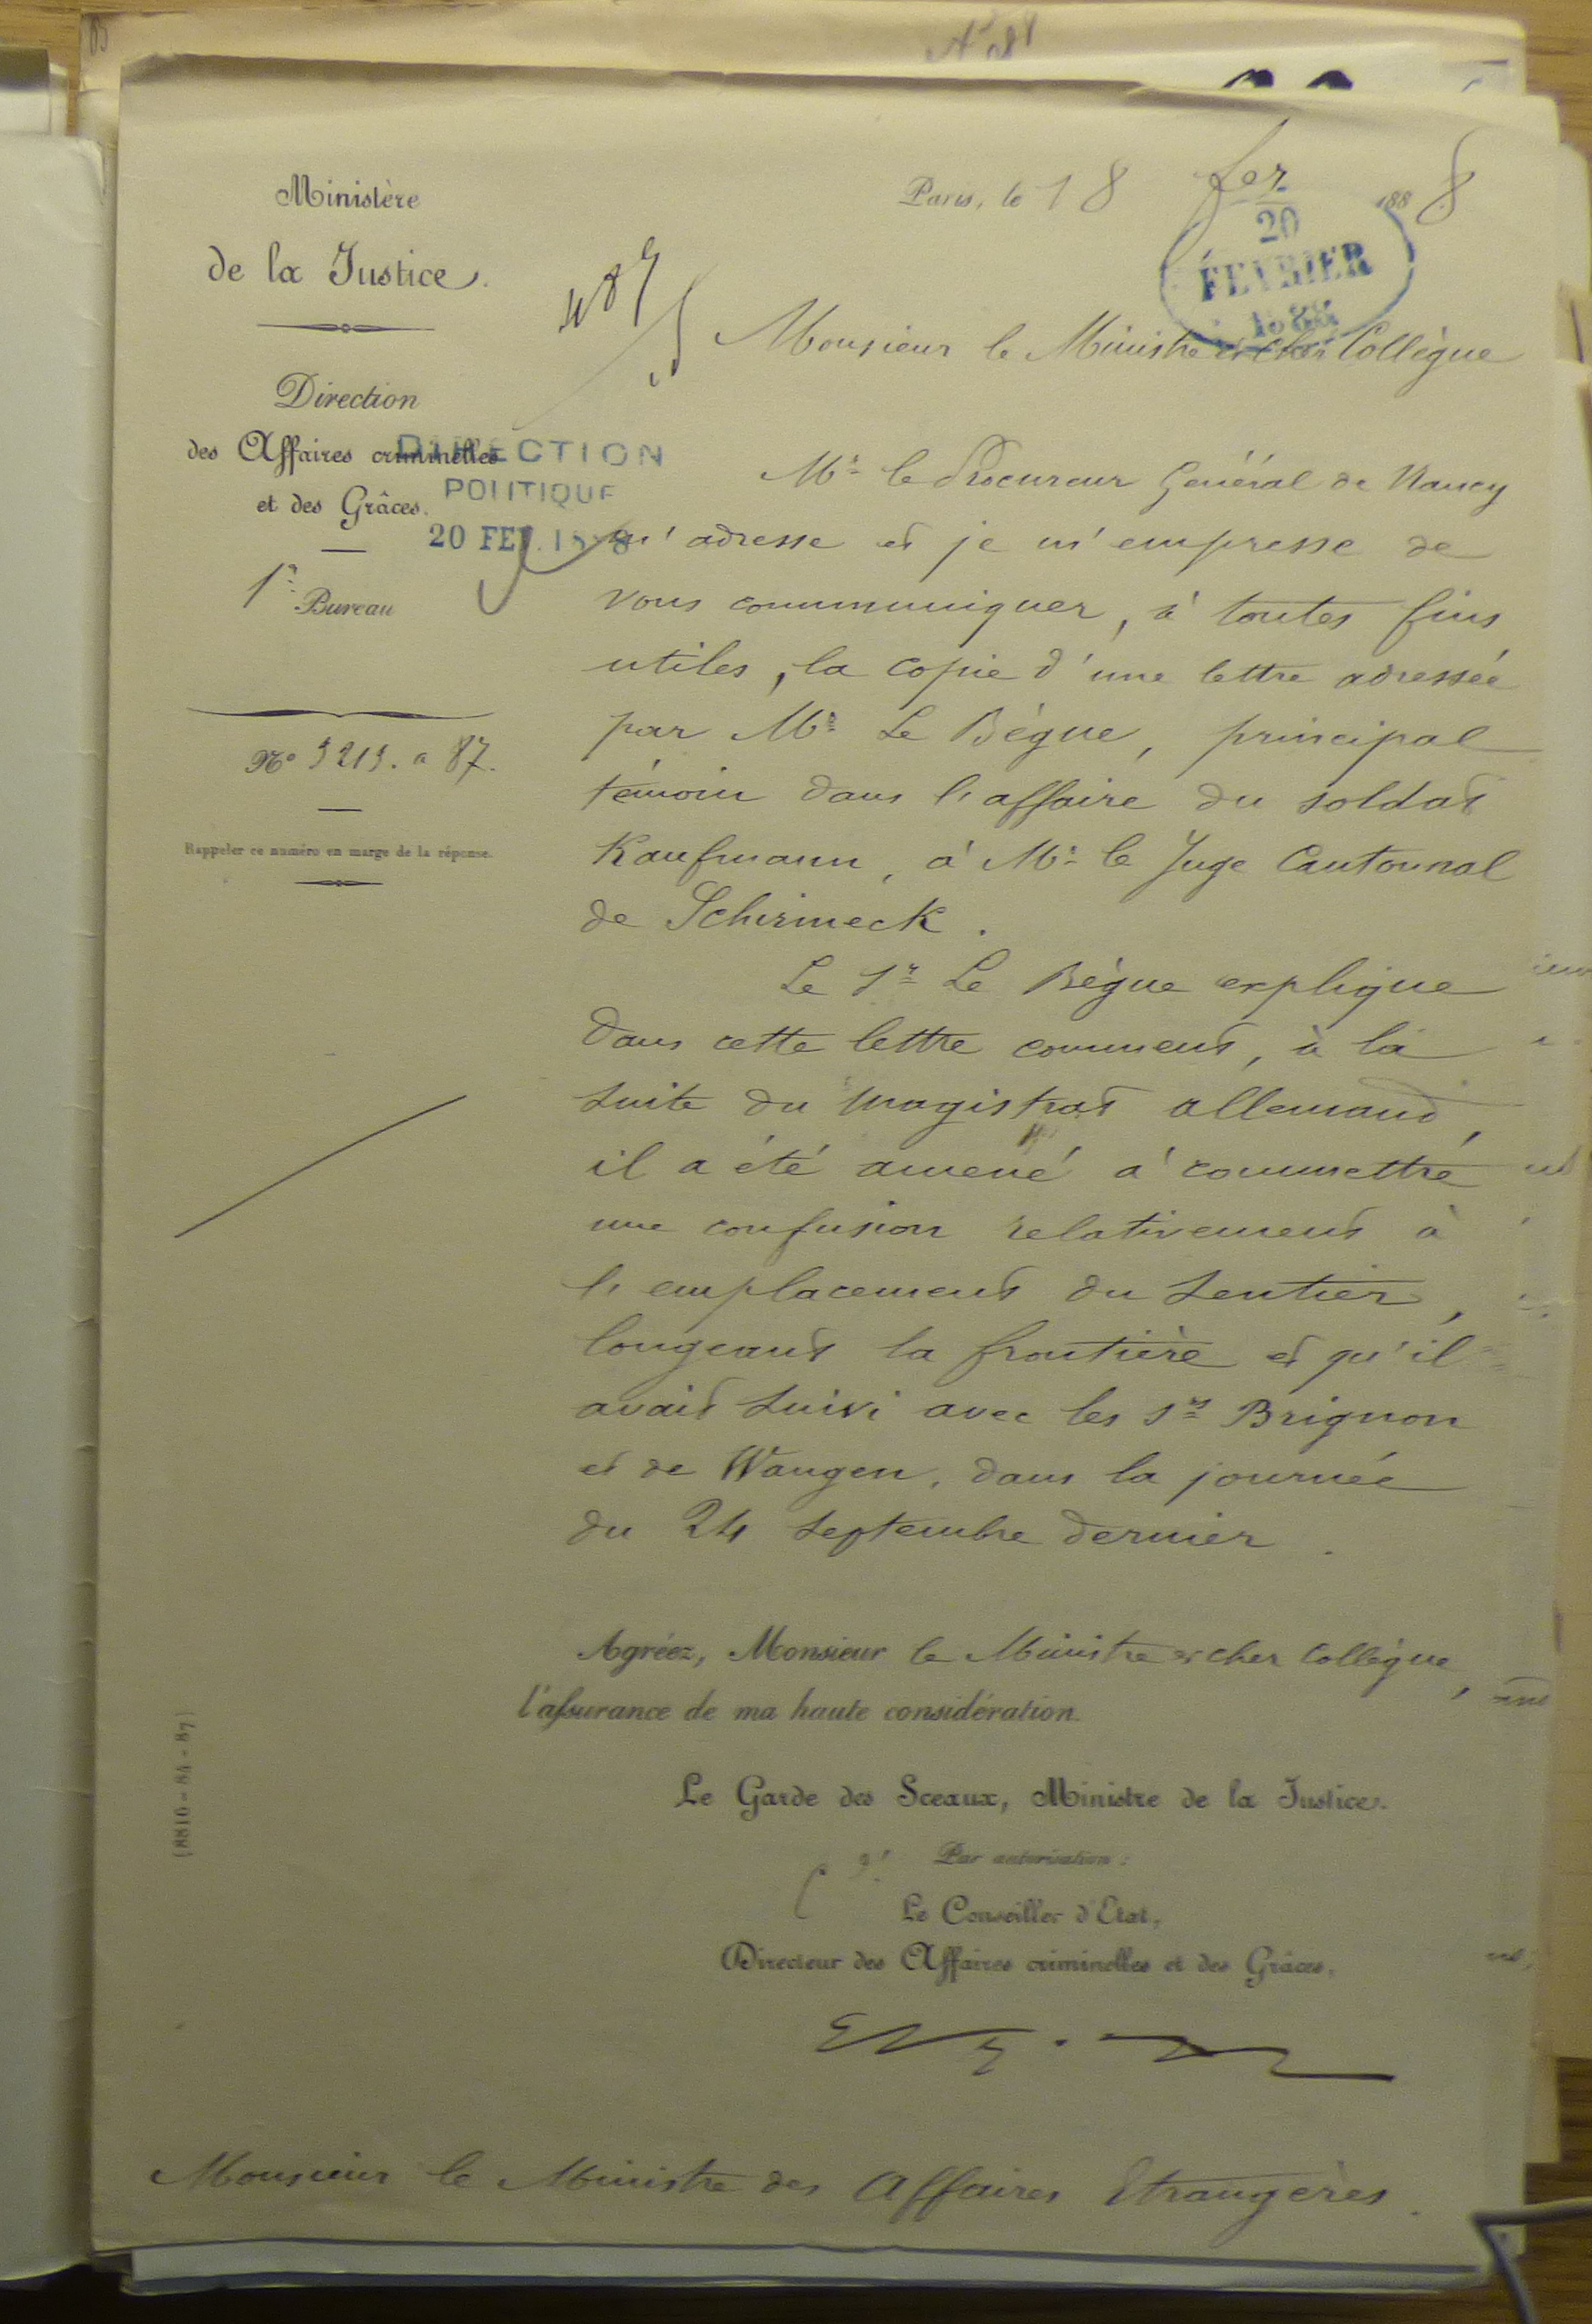 Ministère
de la Justice.
Direction
des Affaires criminelles
et des Grâces.
1er Bureau
DIRECTION
POLITIQUE
20 FEV. 1888
No 3213. a 87.
Rappeler ce numéro en marge de la réponse.
Paris, le 18 fer 1888
20
FÉVRIER
1888
Monsieur le Ministre et cher Collègue
Mr le Procureur Général de Nancy
m'adresse et je m'empresse de
vous communiquer, à toutes fins
utiles, la copie d'une lettre adressée
par Mr Le Bègue, principal
témoin dans l'affaire du soldat
Kaufmann, à Mr le Juge Cantonnal
de Schirmeck.
Le Sr Le Bègue explique
dans cette lettre comment, à la
suite du magistrat allemand,
il a été amené à commettre
une confusion relativement à
l'emplacement du sentier,
longeant la frontière et qu'il
avait suivi avec les Srs Brignon
et de Wangen, dans la journée
du 24 septembre dernier.
Agréez, Monsieur le Ministre et cher Collègue,
l'assurance de ma haute considération.
Le Garde des Sceaux, Ministre de la Justice.
Par autorisation :
Le Conseiller d'Etat,
Directeur des Affaires criminelles et des Grâces,
Monsieur le Ministre des Affaires Etrangères.
(8816-84-87)